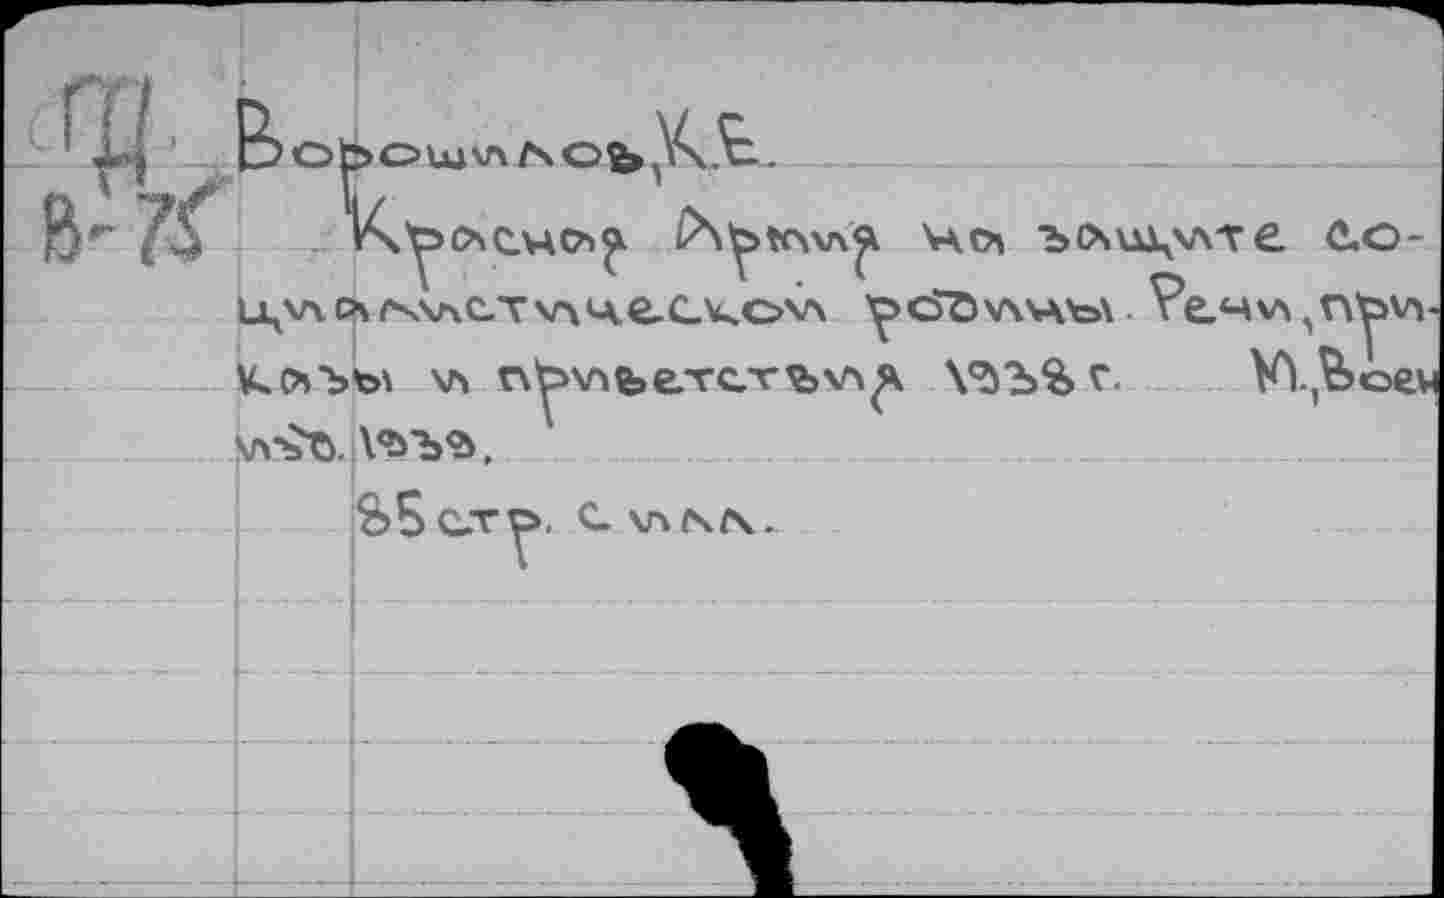 Ц
В-75
Ворошилов, К.Е.
Красная Армия на защите со-
циалистической родины. Речи, при-
казы и приветствия 1938 г. М., Воен
издо. 1939.
85 стр. с илл.